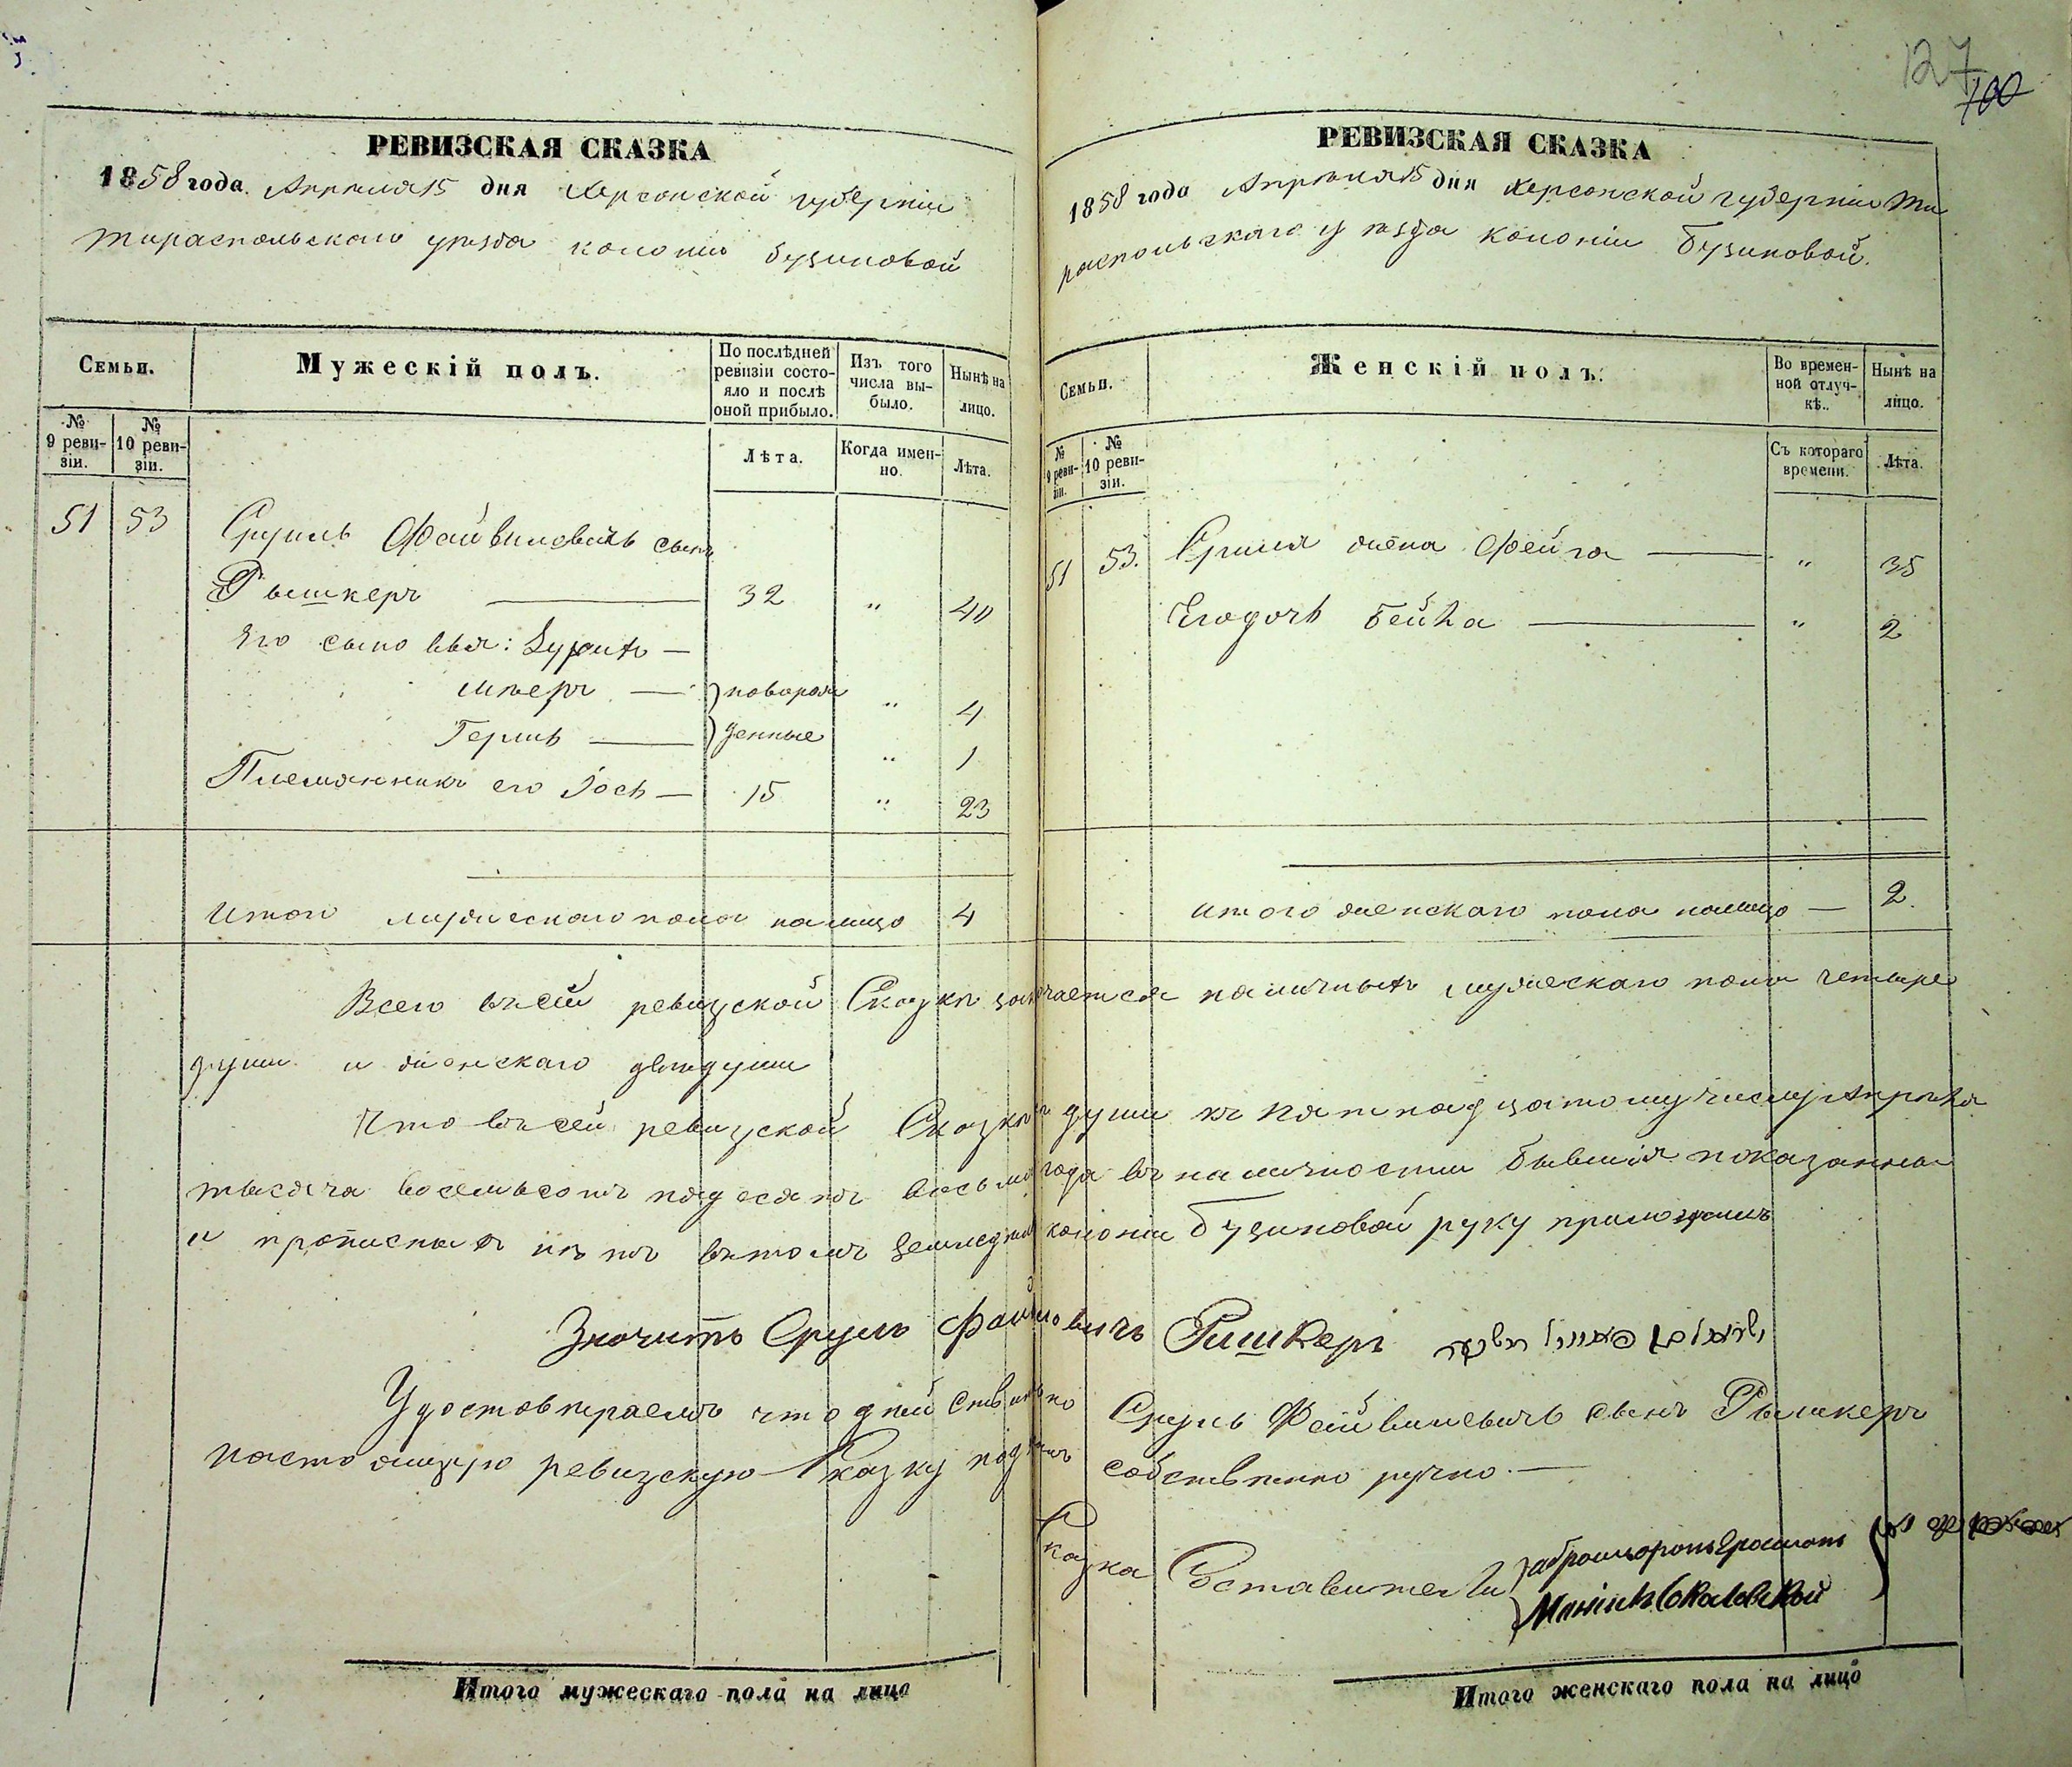 127
100
РЕВИЗСКАЯ СКАЗКА
1858 года Апреля 15 дня Херсонской губерніи
Тираспольскаго уезда колоніи Бузиновой
Семьи.
Мужескій полъ.
По послѣдней ревизіи состояло и послѣ оной прибыло.
Изъ того числа выбыло.
Нынѣ на лицо.
№ 9 ревизіи.
№ 10 ревизіи.
Лѣта.
Когда именно.
Лѣта.
51 53 Сруль Файвиловичъ сынъ
Рышкеръ 32 " 40
Его сыновья:
Мееръ } новорож " 4
Гершь } денные " 1
Племянникъ его Іось 15 " 23
Итого мужескаго пола налицо 4
РЕВИЗСКАЯ СКАЗКА
1858 года Апреля 15 дня Херсонской губерніи Ти
распольскаго уезда колоніи Бузиновой.
Семьи.
Женскій полъ.
Во временной отлучкѣ.
Нынѣ на лицо.
№ 9 ревизіи.
№ 10 ревизіи.
Съ котораго времени.
Лѣта.
51 53. Сруля жена Фейга " 35
Его дочь Бейла " 2
Итого женскаго пола налицо 2.
Всего въ сей ревизской Сказке значается наличныхъ мужескаго пола четыре
души и женскаго две души
Что въ сей ревизской Сказке души къ пятнадцатому числу Апреля
тысяча восемьсотъ пядесятъ восьмо года въ наличности бывшія показанны
и прописныхъ нетъ въ томъ колоніи Бузиновой руку приложилъ
Значитъ Сруль Файвиловичъ Ришкеръ
Удостоверяемъ что действительно Сруль Файвиловичъ сынъ Рышкеръ
настоящую ревизскую Сказку подписалъ собственно ручно.
Сказка Составители
Итого мужескаго пола на лицо
Итого женскаго пола на лицо